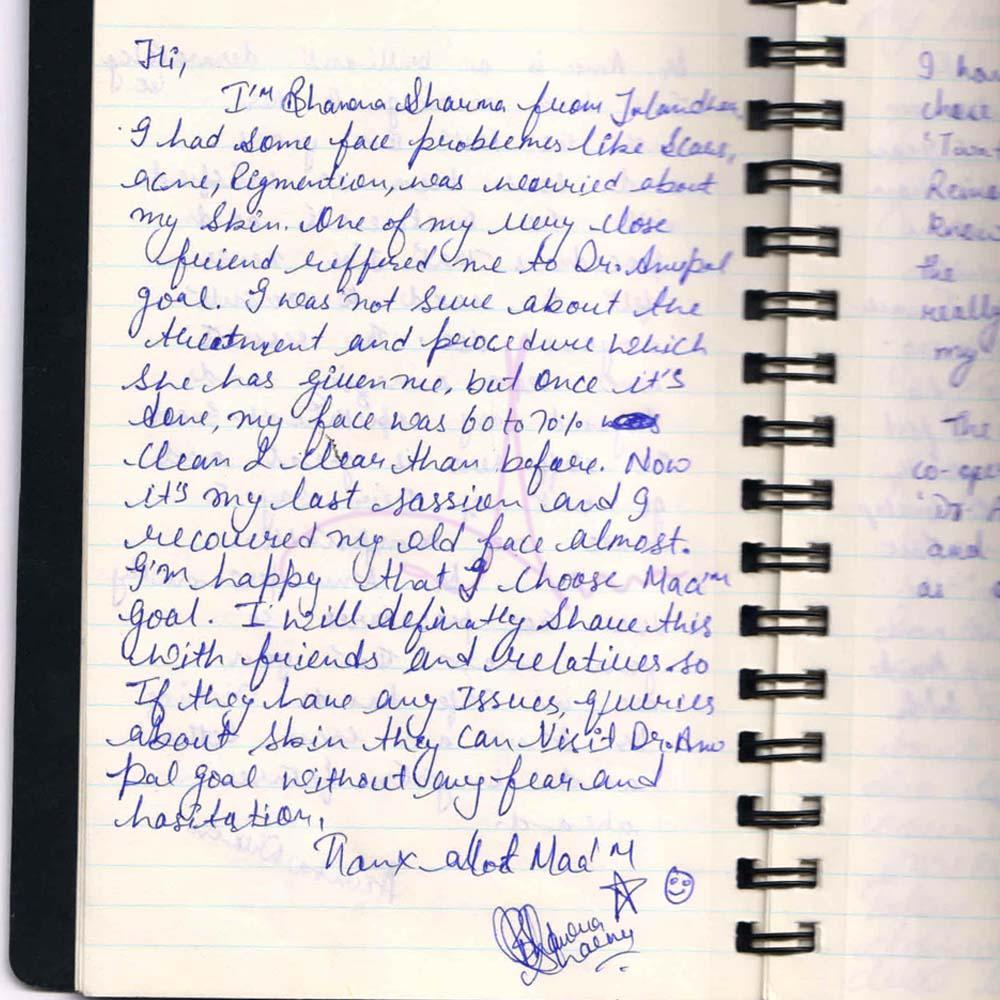 Hi,
I'm Bhavona Sharma from Jalandhar,
I had some face problems like Scars,
acne, Pigmention, was worried about
my Skin. One of my very close
friend reffered me to Dr. Anupal
goal. I was not Sure about the
threatment and procedure which
She has given me, but once it's
done, my face was 60 to 70%
Clean & Clear than before. Now
it's my last sassion and I
recovered my old face almost.
I'm happy that I choose Maa'm
Goal. I will definatly Share this
with friends and relatives. so
If they have any Issues, queuries
about skin they can Visit Dr. Anu
Pal goal without any fear and
hasitation,
Thanx alot Maa'm
Bhavona
Sharma
I ha
chose
Rein
knew
the
really
my
The
co-ope
Dr. A
and
as